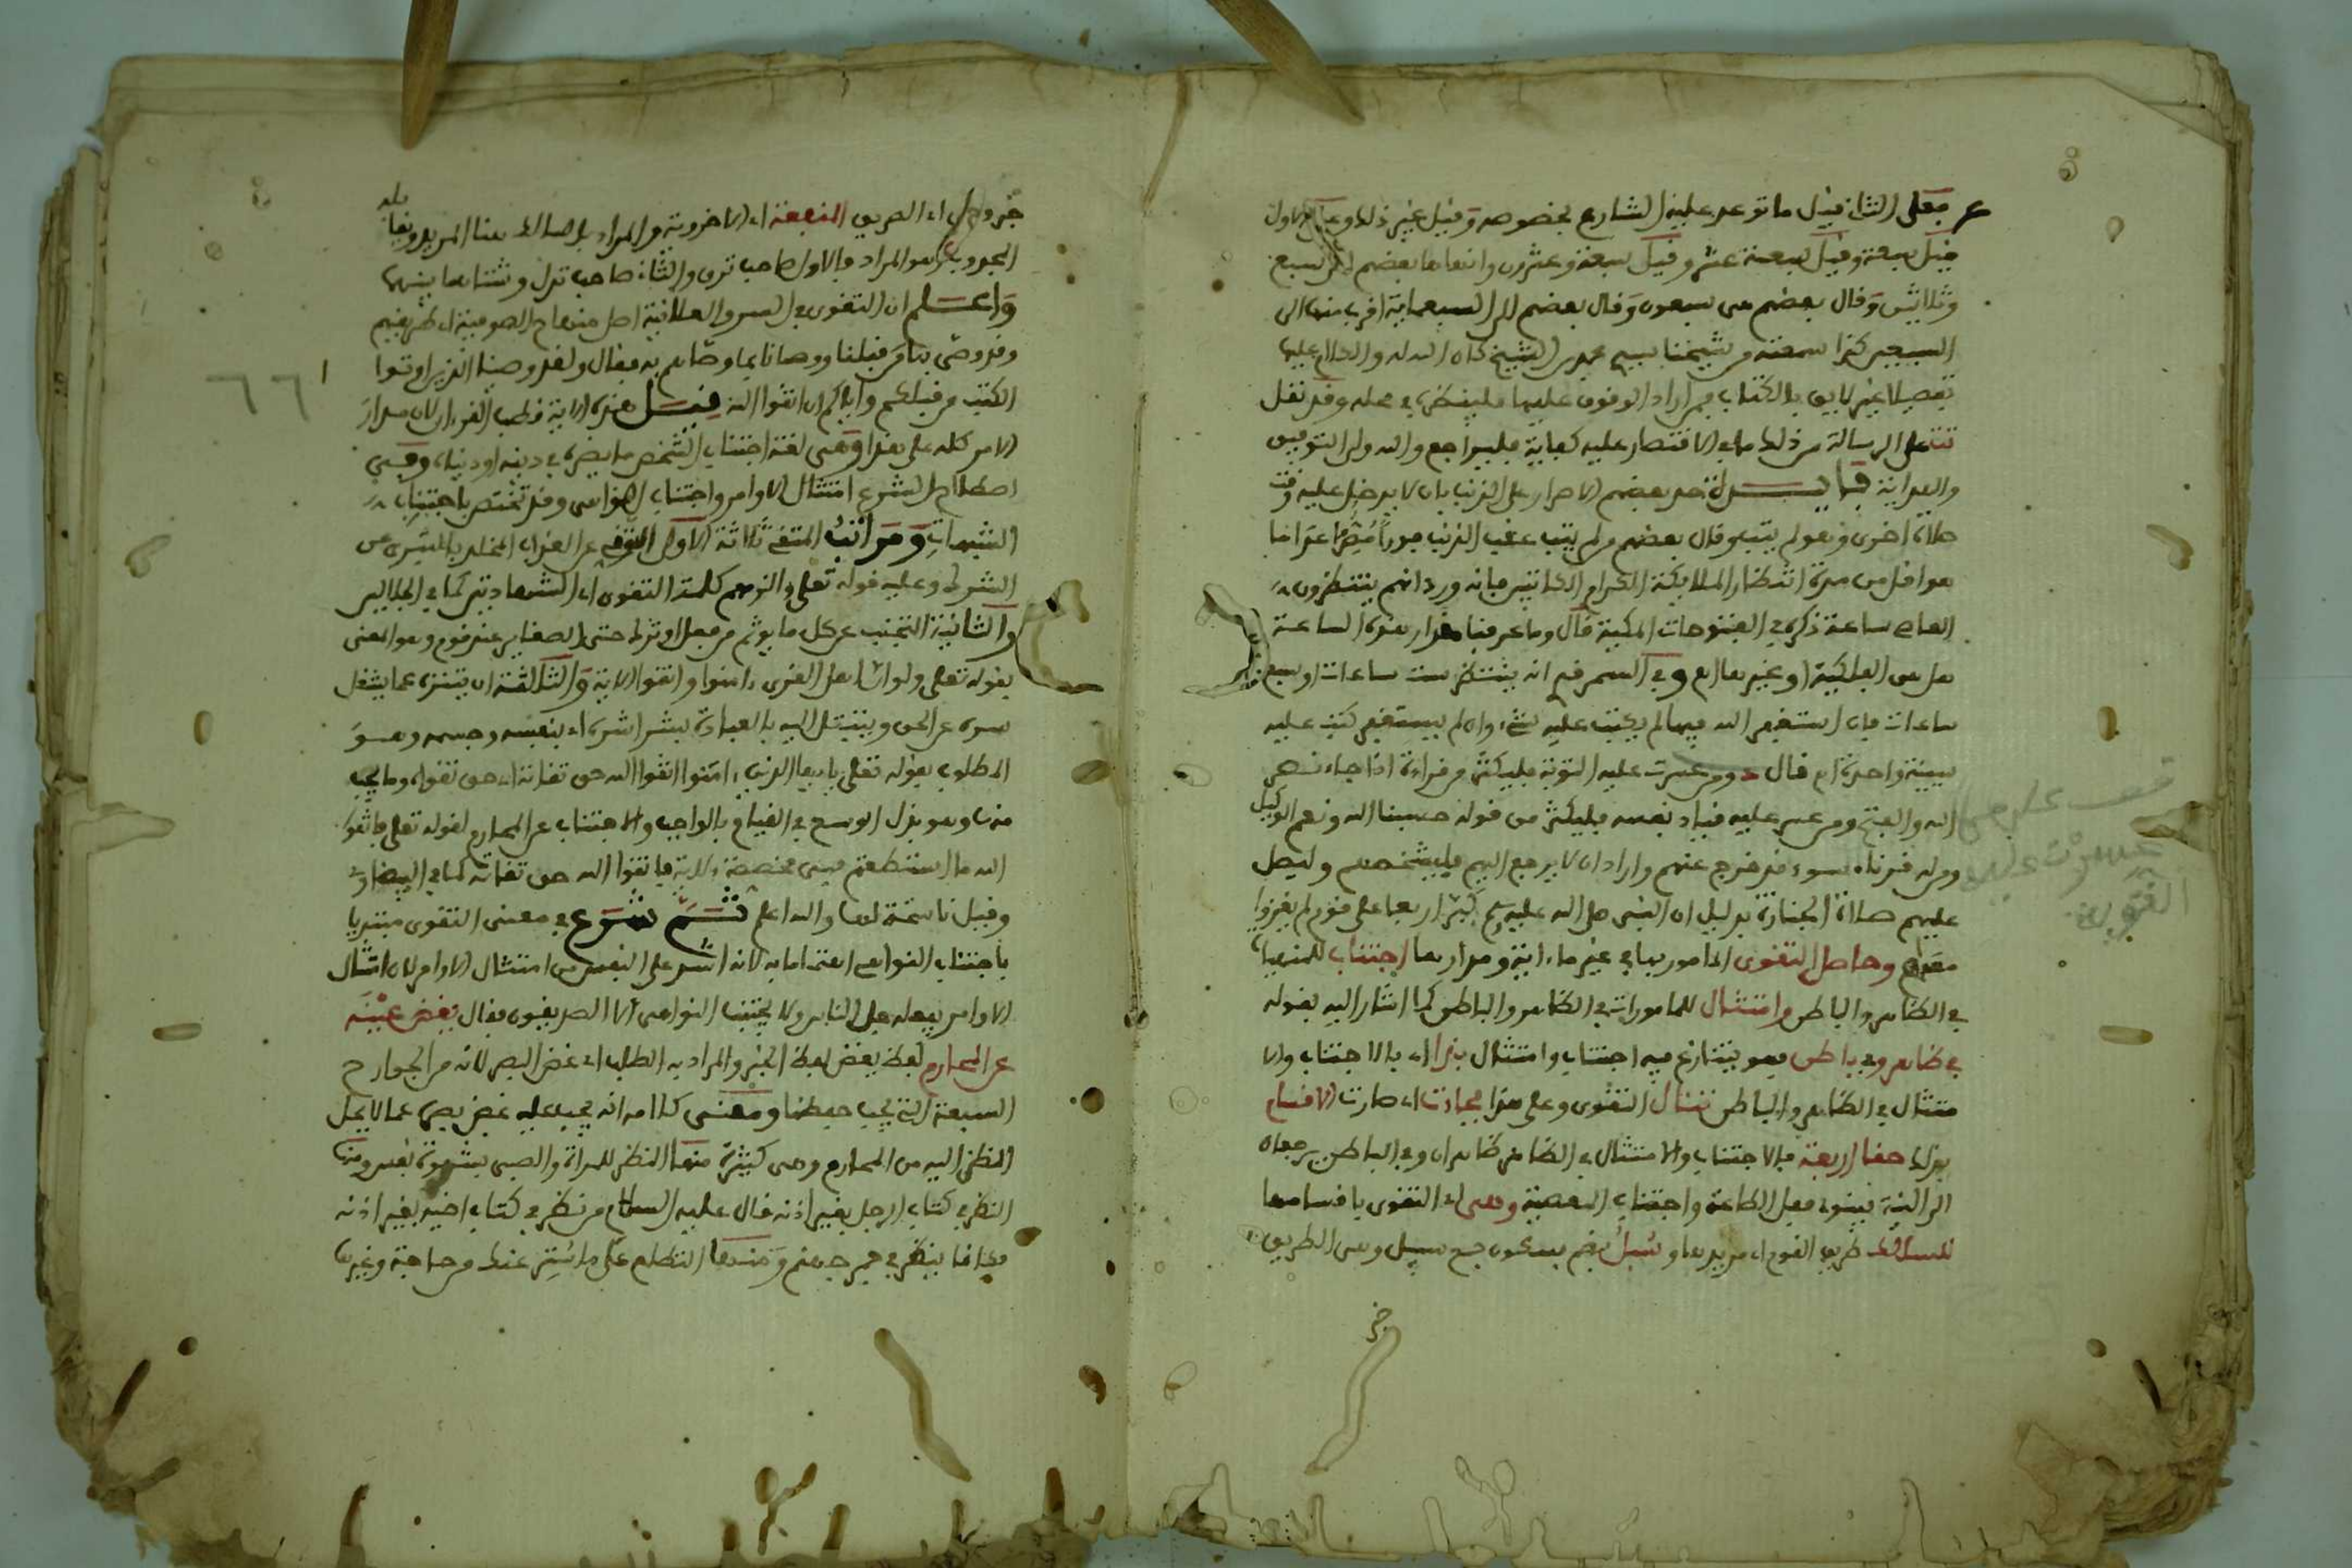 فعلى الثاني قيل ما توعد عليه الشارع بخصوصه وقيل غير ذلك وعلى الاول
قيل سبعة وقيل سبعة عشر وقيل سبعة وعشرون وانهاها بعضهم الى سبع
وثلاثين وقال بعضهم هي سبعون وقال بعضهم الى السبعماية اقرب منها الى
السبعين كذا سمعته من شيخنا سيدي محمد بن الشيخ كان الله له والكلام عليها
تفصيلا غير لايق بالكتاب فمن اراد الوقوف عليها فلينظره في محله وقد نقل
على الرسالة من ذلك ما في الاقتصار عليه كفاية فليراجع والله ولي التوفيق
والهداية فايدة حد بعضهم الاصرار على الذنب بان لا يدخل عليه وقت
صلاة اخرى وهو لم يتب وقال بعضهم من لم يتب عقب الذنب فورا مصرا عدا ما
هو اقل من مدة انتظار الملايكة الكرام الكاتبين فانه ورد انهم ينتظرون
العاصي ساعة ذكره في الفتوحات المكية قال وما عرفنا مقدار هذه الساعة
هل هي الفلكية او غيرها اه وفي السمرقندي انه ينتظر ست ساعات او سبع
ساعات فان استغفر الله فيها لم يكتب عليه شيء وان لم يستغفر كتب عليه
سيئة واحدة اه قال ومن عسرت عليه التوبة فليكثر من قراءة اذا جاء نصر
الله والفتح ومن عسر عليه قياد نفسه فليكثر من قوله حسبنا الله ونعم الوكيل
ومن له قرناء سوء قد خرج عنهم واراد ان لا يرجع اليهم فليشخصهم وليصل
عليهم صلاة الجنازة بدليل ان النبي صلى الله عليه وسلم كبر اربعا على قوم لم يغزوا
معه اه وحاصل التقوى المامور بها في غير ما اية ومدارها اجتناب للمنهيات
في الظاهر والباطن وامتثال للمامورات في الظاهر والباطن كما اشار اليه بقوله
في ظاهر وفي باطن فهو يتنازع فيه اجتناب وامتثال بذا اي بالاجتناب والا
متثال في الظاهر والباطن تنال التقوى وعلى هذا فجاءت اي صارت الاقسام
بذلك حقا اربعة فالاجتناب والامتثال في الظاهر ظاهران وفي الباطن يرجعان
الى النية فينوي فعل الطاعة واجتناب المعصية وهي اي التقوى باقسامها
للسالك طريق القوم اي مريدها وسبل بضم بسكون جمع سبيل وهي الطريق
قف على من
عسرت عليه
التوبة
اي الطريق المنفعة اي الاخروية والمراد بالسالك هنا المريد
المجذوب هو المراد فالاول صاحب ترق والثاني صاحب تدل وشتان ما بينهما
واعلم ان التقوى في السر والعلانية اصل منهاج الصوفية اي طريقهم
وقد وصى بها من قبلنا ووصانا بما وصاهم به فقال ولقد وصينا الذين اوتوا
الكتب من قبلكم واياكم ان اتقوا الله قيل هذه الاية قطب القرءان لان مدار
الامر كله على هذا وهي لغة اجتناب الشخص ما يضره في دينه او دنياه وفي
اصطلاح الشرع امتثال الاوامر واجتناب النواهي وقد تختص باجتناب
الشبهات ومراتب المتقي ثلاثة الاول التوقي عن العذاب المخلد بالتبري من
الشرك وعليه قوله تعلى والزمهم كلمة التقوى اي الشهادتين كما في الجلالين
والثانية التجنب عن كل ما يوثم من فعل او ترك حتى الصغاير عند قوم وهو المعنى
بقوله تعلى ولو ان اهل القرى ءامنوا واتقوا الاية والثالثة ان يتنزه عما يشغل
سره عن الحق ويتبتل اليه بالعبادة بشراشره اي بنفسه وجسمه وهو
المطلوب بقوله تعلى يا ايها الذين ءامنوا اتقوا الله حق تقاته اي حق تقواه وما يجب
منها وهو بذل الوسع في القيام بالواجب والاجتناب عن المحارم لقوله تعلى فاتقوا
الله ما استطعتم فهي مخصصة لاية فاتقوا الله حق تقاته كما في البيضاوي
وقيل ناسخة لها والله اعلم ثم شرع في معنى التقوى مبتديا
باجتناب النواهي اهتماما به لانه اشد على النفس من امتثال الاوامر لان امتثال
الاوامر يفعله جل الناس ولا يجتنب النواهي الا الصديقون فقال يغض عينه
عن المحارم لفظ يغض لفظ الخبر والمراد به الطلب اي غض البصر لانه من الجوارح
السبعة التي يجب حفظها ومعنى كلامه انه يجب عليه غض بصره عما لا يحل
النظر اليه من المحارم وهي كثيرة منها النظر للمراة والصبي بشهوة نفس ومنها
النظر في كتاب الرجل بغير اذنه قال عليه السلام من نظر في كتاب اخيه بغير اذنه
فكانما ينظر في جمر جهنم ومنها التطلع على ما استتر عنك من حاجة وغيرها
٦٦١